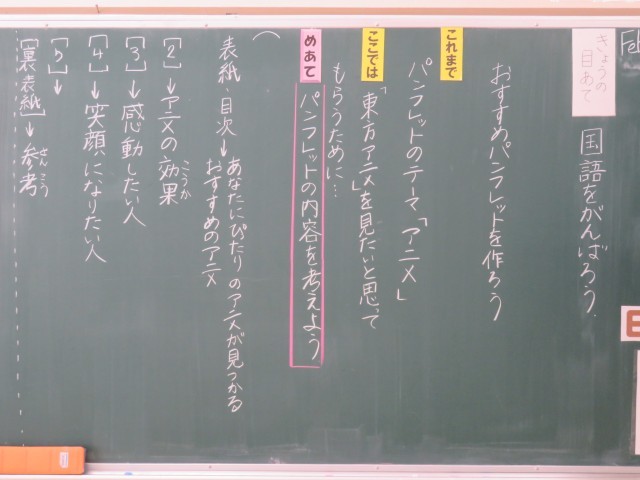 きょうの
目あて
国語をがんばろう.
おすすめパンフレットを作ろう
これまで
パンフレットのテーマ「アニメ」
ここでは
「東方アニメ」を見たいと思って
もらうために…
めあて
パンフレットの内容を考えよう
表紙・目次→あなたにぴたりのアニメが見つかる
おすすめのアニメ
[2]→アニメの効果
こうか
[3]→感動したい人
[4]→笑顔になりたい人
[5]→
[裏表紙]→参考
さんこう